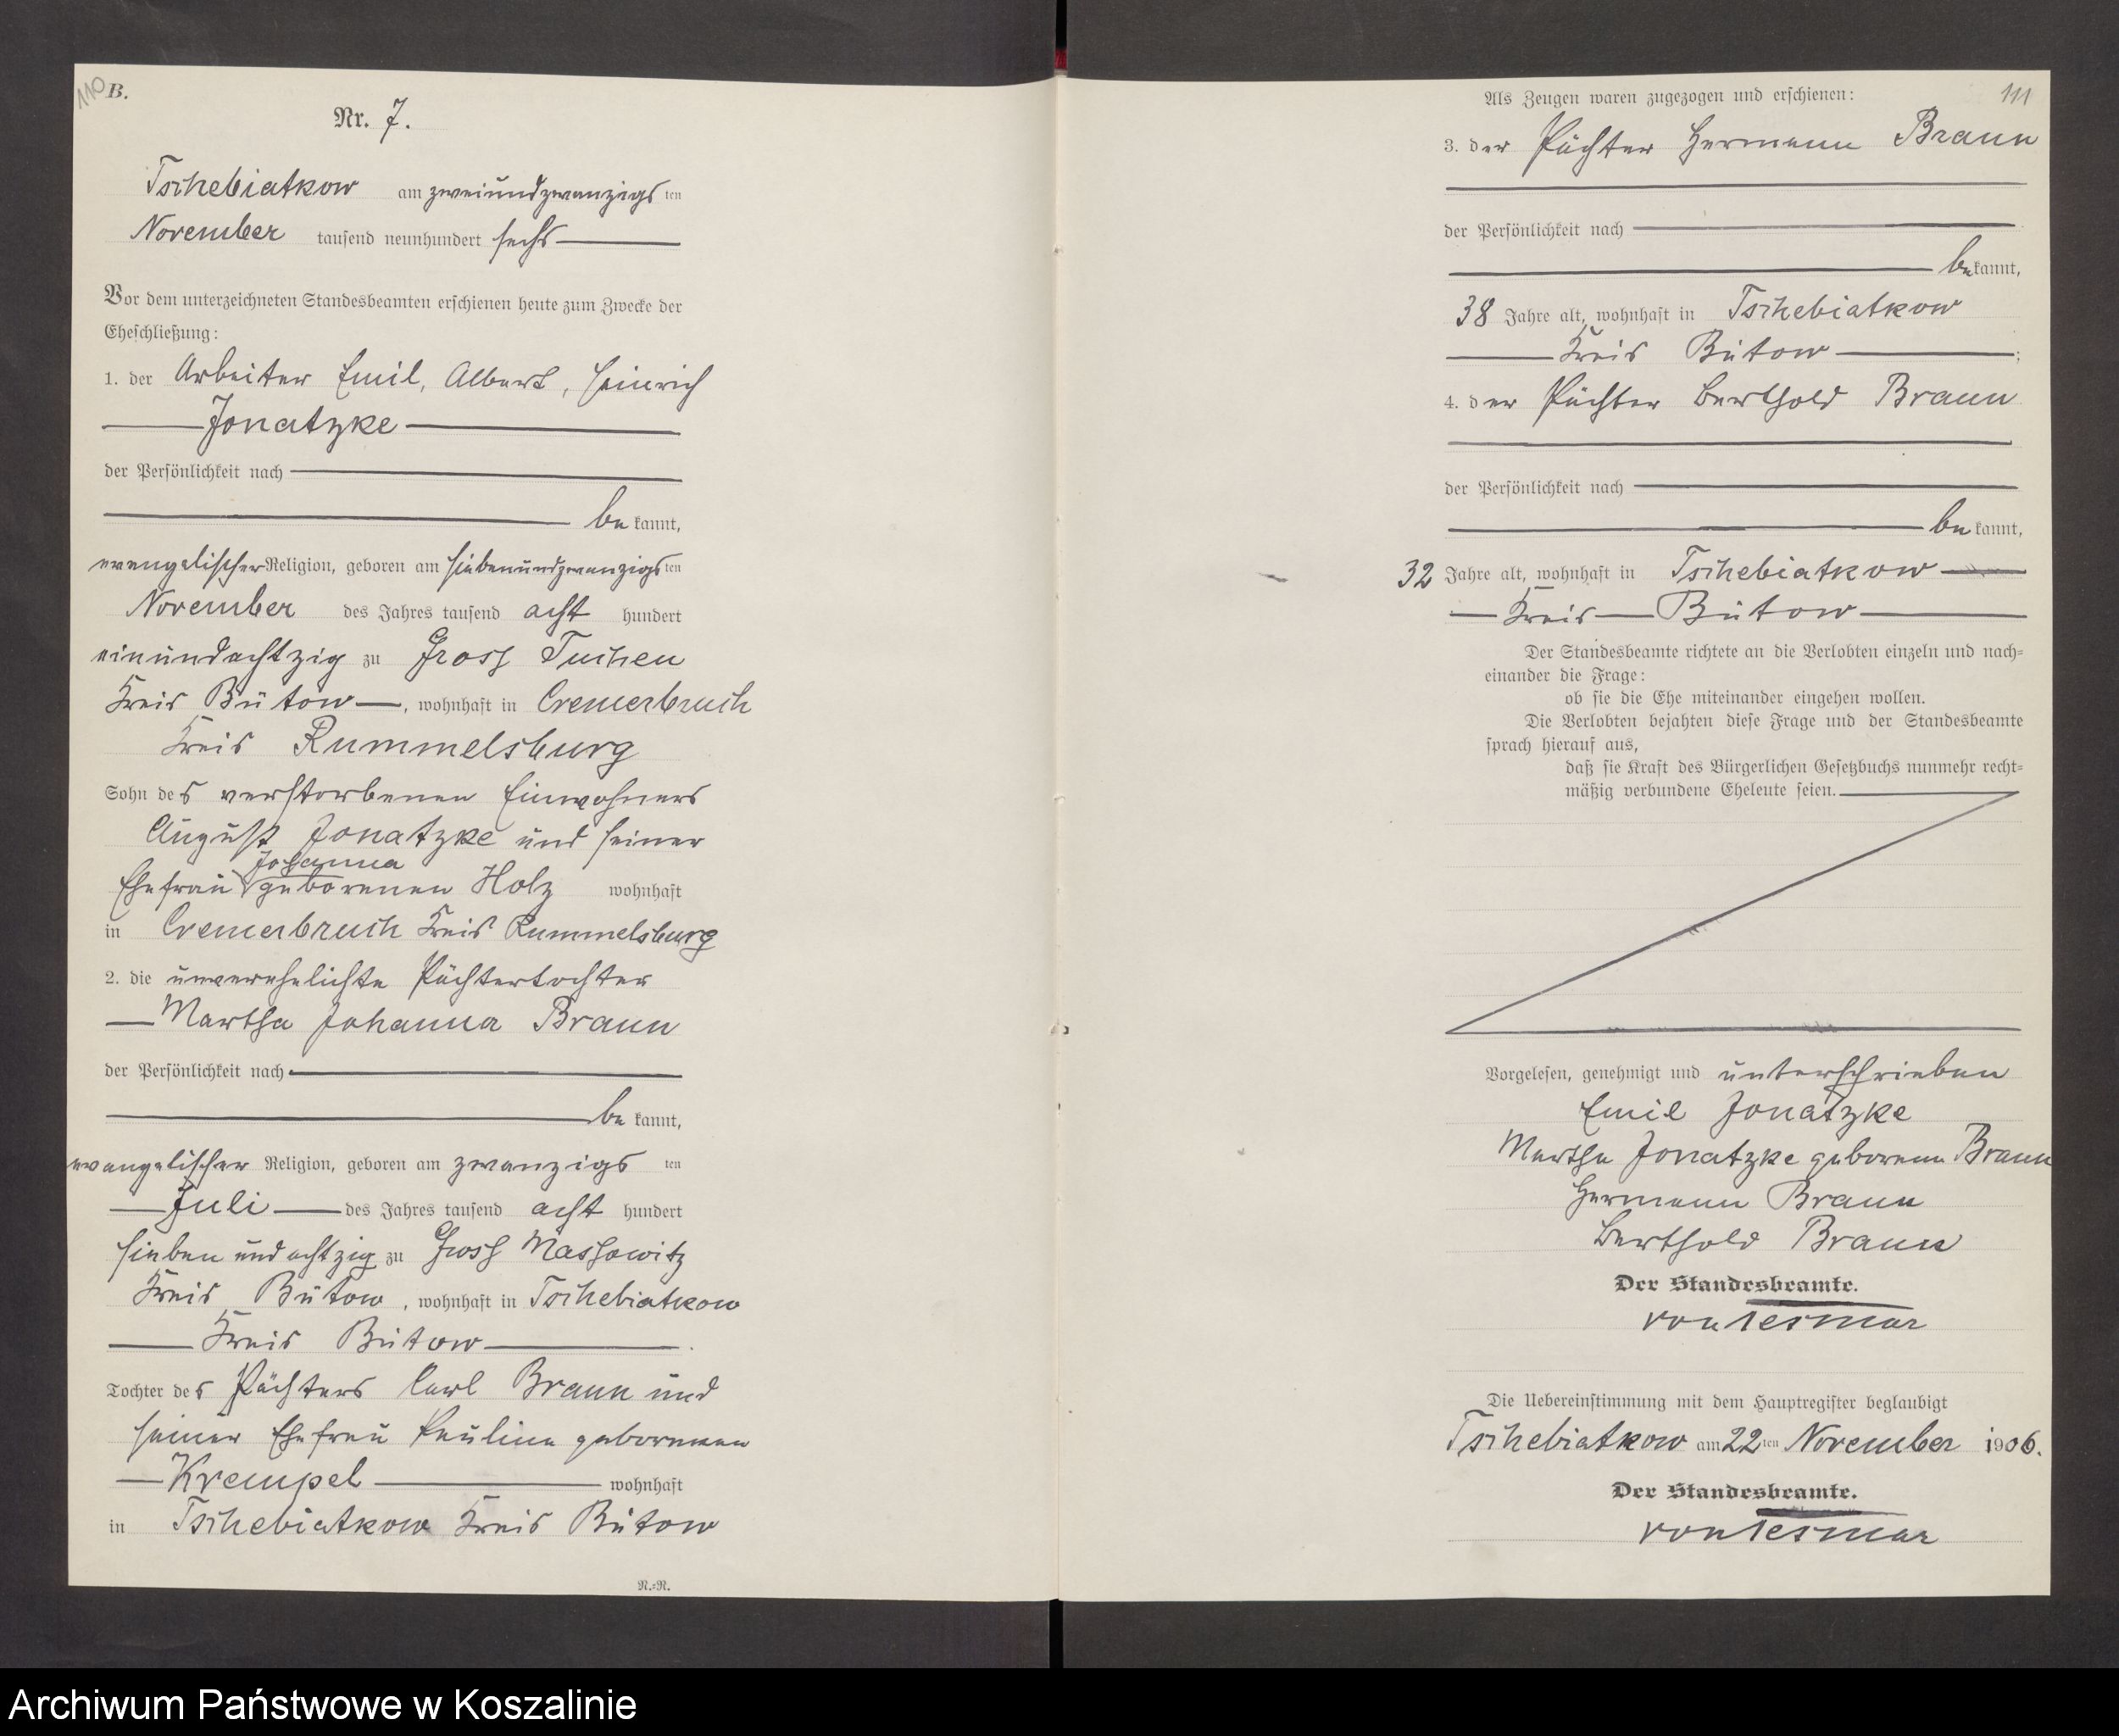 110 B.
Nr. 7.
Tschebiatkow am zweiundzwanzigsten
November tausend neunhundert sechs
Vor dem unterzeichneten Standesbeamten erschienen heute zum Zwecke der
Eheschließung:
1. der Arbeiter Emil, Albert, Heinrich
Jonatzke
der Persönlichkeit nach
be kannt,
evangelischer Religion, geboren am siebenundzwanzigsten
November des Jahres tausend acht hundert
einundachtzig zu Gross Tuchen
Kreis Bütow, wohnhaft in Cremerbruch
Kreis Rummelsburg
Sohn des verstorbenen Einwohners
August Jonatzke und seiner
Johanna
Ehefrau geborenen Holz wohnhaft
in Cremerbruch Kreis Rummelsburg
2. die unverehelichte Pächtertochter
Martha Johanna Braun
der Persönlichkeit nach
be kannt,
evangelischer Religion, geboren am zwanzigsten
Juli des Jahres tausend acht hundert
sieben und achtzig zu Gross Massowitz
Kreis Bütow, wohnhaft in Tschebiatkow
Kreis Bütow.
Tochter des Pächters Carl Braun und
seiner Ehefrau Pauline geborenen
Krempel wohnhaft
in Tschebiatkow Kreis Bütow
N.=N.
111
Als Zeugen waren zugezogen und erschienen:
3. der Pächter Hermann Braun
der Persönlichkeit nach
be kannt,
38 Jahre alt, wohnhaft in Tschebiatkow
Kreis Bütow;
4. der Pächter Berthold Braun
der Persönlichkeit nach
be kannt,
32 Jahre alt, wohnhaft in Tschebiatkow
Kreis Bütow
Der Standesbeamte richtete an die Verlobten einzeln und nach=
einander die Frage:
ob sie die Ehe miteinander eingehen wollen.
Die Verlobten bejahten diese Frage und der Standesbeamte
sprach hierauf aus,
daß sie Kraft des Bürgerlichen Gesetzbuchs nunmehr recht=
mäßig verbundene Eheleute seien.
Vorgelesen, genehmigt und unterschrieben
Emil Jonatzke
Martha Jonatzke geborene Braun
Hermann Braun
Berthold Braun
Der Standesbeamte.
von Tesmar
Die Uebereinstimmung mit dem Hauptregister beglaubigt
Tschebiatkow am 22ten November 1906.
Der Standesbeamte.
von Tesmar
Archiwum Państwowe w Koszalinie